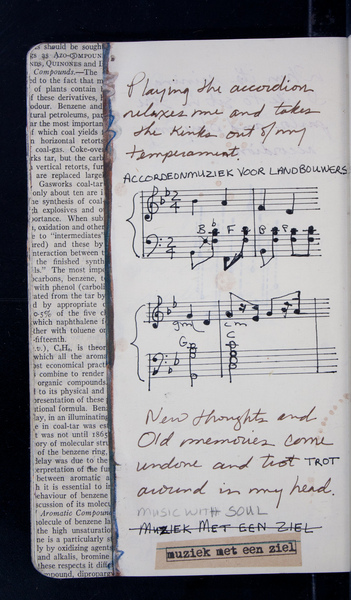 s should be sought
gs as AZO-COMPOUN
NDS, QUINONES and I
Compounds.—The
ed to the fact that m
of plants contain
f these derivatives, l
odour. Benzene and
tural petroleums, par
ar the most important
f which coal yields 1
n horizontal retorts
coal-gas. Coke-ove
rks tar, but the carb
vertical retorts, fur
are replaced larger
Gasworks coal-tar
only about ten are i
he synthesis of coal
h explosives and o
portance. When sub
, oxidation and other
e to "intermediates"
ired) and these by
nteraction between t
the finished synth
ls." The most imp
carbons, benzene, to
with phenol (carboli
ated from the tar by
d by appropriate c
0·5% of the five c
which naphthalene f
ther with toluene or
-fifteenth.
C₆H₆, is theor
which all the aroma
st economical practi
combine to render
organic compounds,
to its physical and
presentation of these
tional formula. Benz
lay, in an illuminating
e in coal-tar was est
t was not until 1865
ory of molecular stru
of the benzene ring,
delay was due to the
erpretation of the fu
between aromatic a
h it is essential to i
ehaviour of benzene
scussion of its molecu
Aromatic Compound
olecule of benzene la
the high unsaturatio
e is a particularly st
ly by oxidizing agents
and alkalis, bromine
these respects it diffe
mpound, dipropargy
Playing the accordion
relaxes me and takes
the kinks out of my
temperament.
ACCORDEONMUZIEK VOOR LANDBOUWERS
2/4
2/4
B♭ F
gm cm
G C
New thoughts and
Old memories come
undone and trot TROT
around in my head.
MUSIC WITH SOUL
MUZIEK MET EEN ZIEL
muziek met een ziel